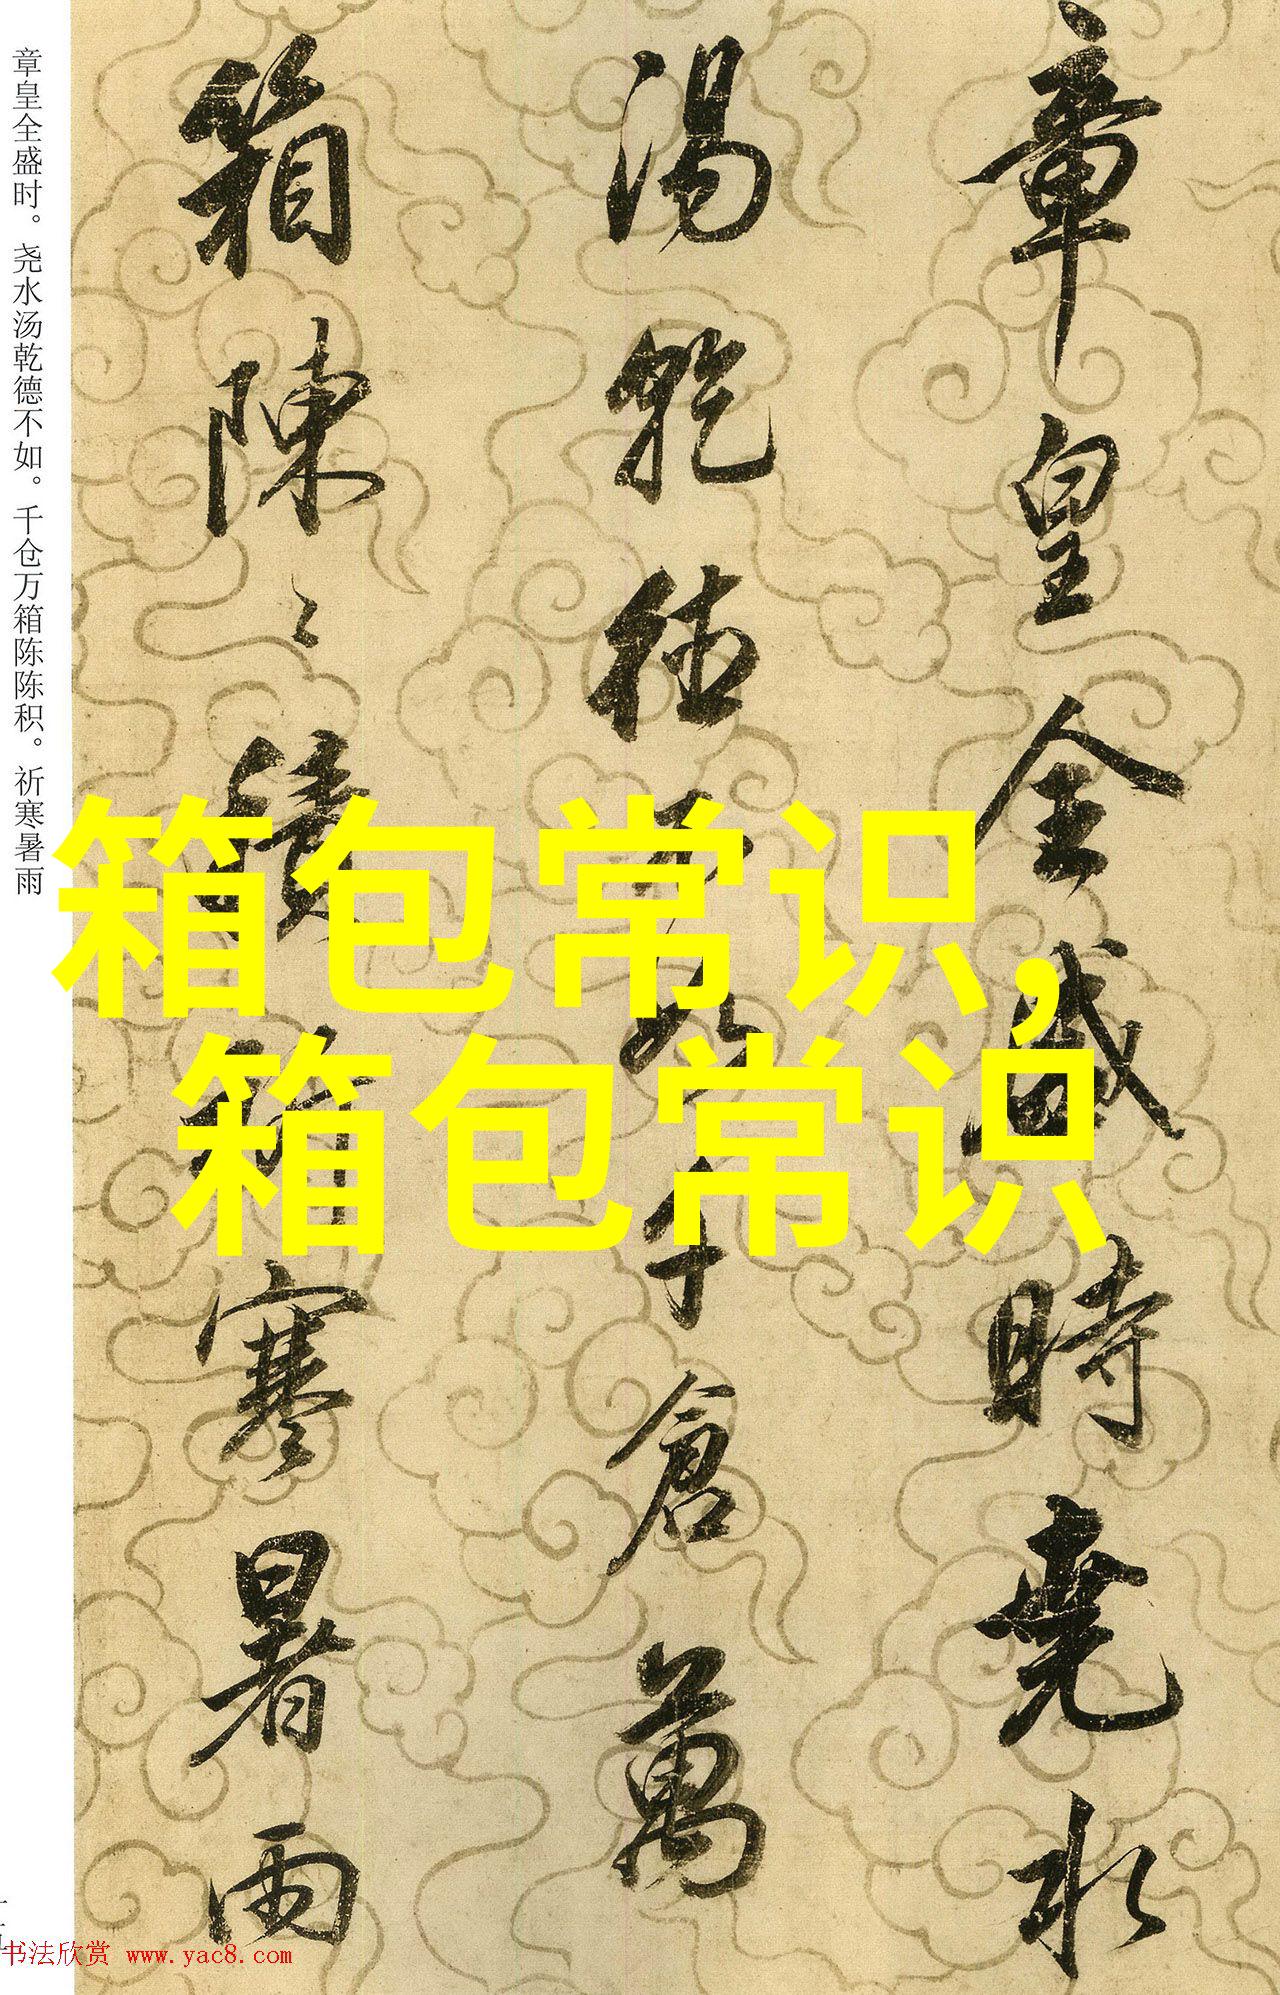 章皇全盛时。尧水汤乾德不如。千仓万箱陈陈积。祈寒暑雨
章皇全盛時尭水
湯乾徳不如千倉萬
箱陳〻積祈寒暑雨
箱包常识,
箱包常识
书法欣赏 www.yac8.com